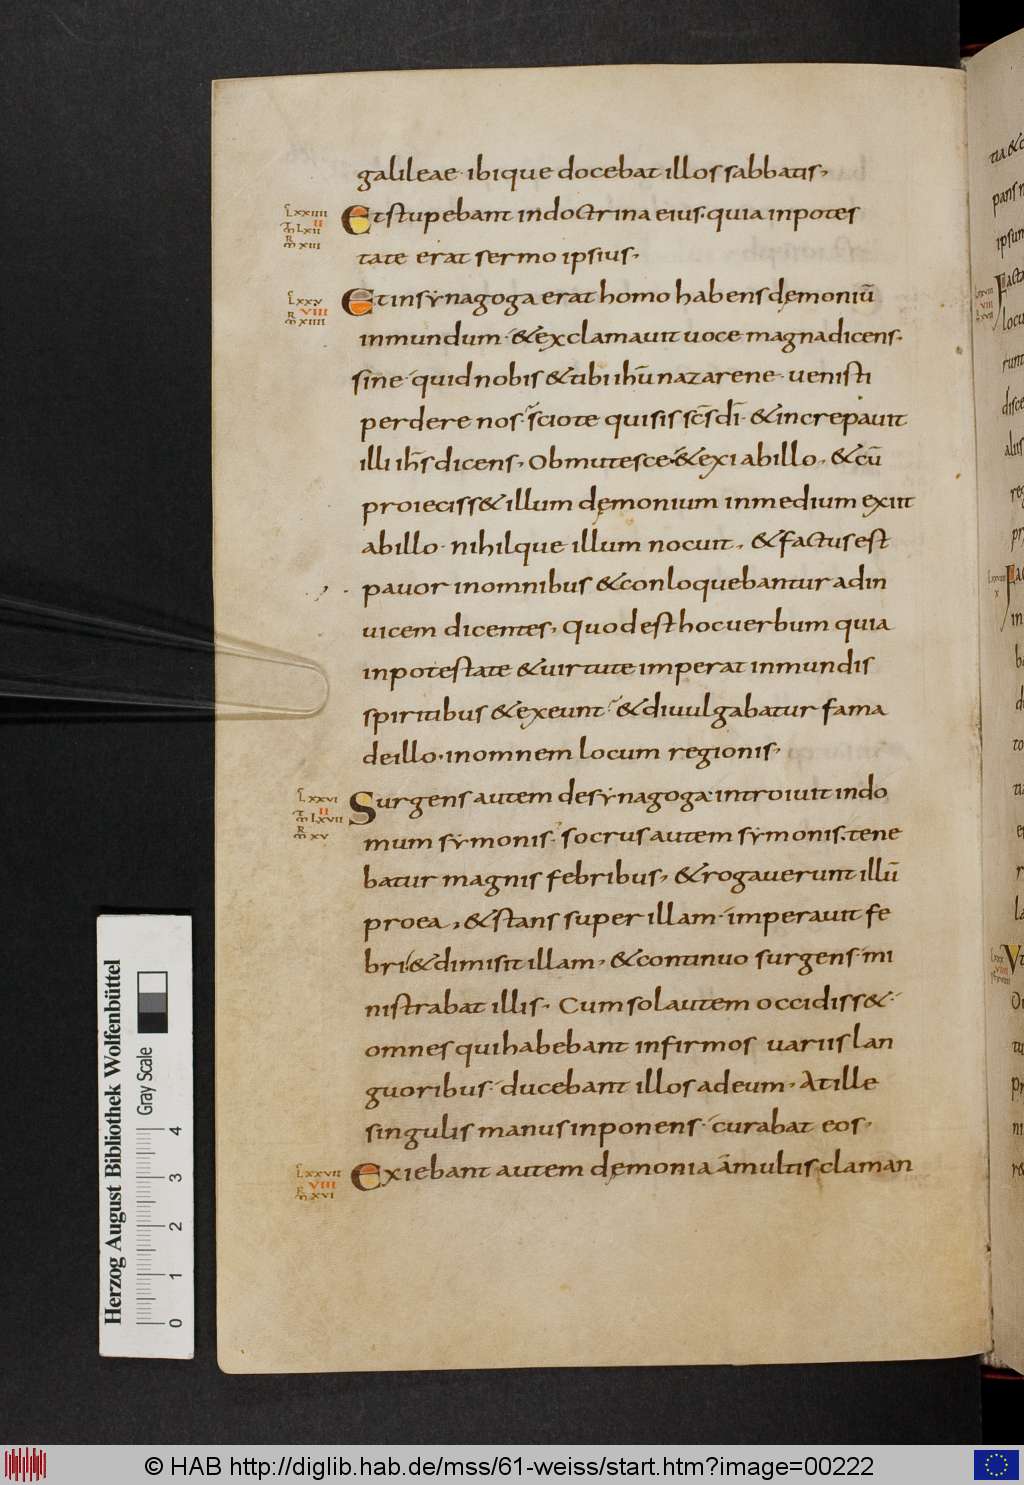 galileae· ibique docebat illos sabbatis,
L xxiiii
II
M Lxii
R
M xiii
Et stupebant in doctrina eius· quia in potes
tate erat sermo ipsius,
L xxv
VIII
R
M xiiii
Et in synagoga erat homo habens dęmoniū
inmundum· & exclamauit uoce magna dicens·
sine quid nobis & tibi ihū nazarene· uenisti
perdere nos· scio te qui sis scs̄ dī· & increpauit
illi ihs̄ dicens, Obmutesce· & exi ab illo, & cū
proieciss& illum dęmonium in medium exiit
ab illo· nihilque illum nocuit, & factus est
pauor in omnibus & conloquebantur ad in
uicem dicentes, Quod est hoc uerbum quia
in potestate & uirtute imperat inmundis
spiritibus & exeunt· & diuulgabatur fama
de illo· in omnem locum regionis,
L xxvi
II
M Lxvii
R
M xv
Surgens autem de synagoga introiuit in do
mum symonis· socrus autem symonis· tene
batur magnis febribus, & rogauerunt illū
pro ea, & stans super illam· imperauit fe
bri· & dimisit illam, & continuo surgens· mi
nistrabat illis· Cum sol autem occidiss&·
omnes qui habebant infirmos uariis lan
guoribus· ducebant illos ad eum, At ille
singulis manus inponens· curabat eos,
L xxvii
VIII
R
M xvi
Exiebant autem dęmonia ā multis claman
Herzog August Bibliothek Wolfenbüttel
Gray Scale
0 1 2 3 4
© HAB http://diglib.hab.de/mss/61-weiss/start.htm?image=00222